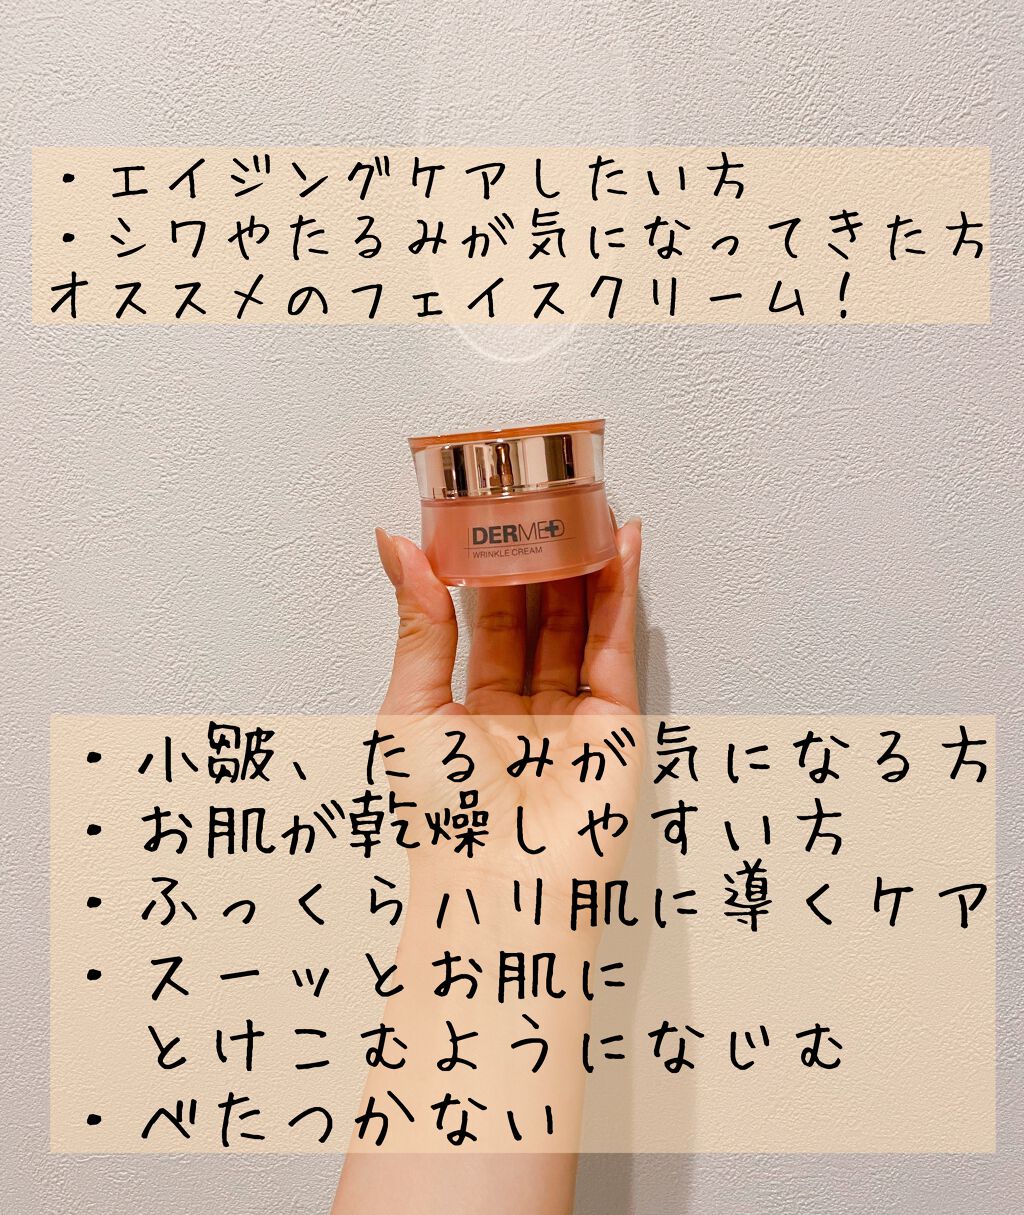 ・エイジングケアしたい方
・シワやたるみが気になってきた方
オススメのフェイスクリーム！
DERMED
WRINKLE CREAM
・小皺、たるみが気になる方
・お肌が乾燥しやすい方
・ふっくらハリ肌に導くケア
・スーッとお肌に
とけこむようになじむ
・べたつかない